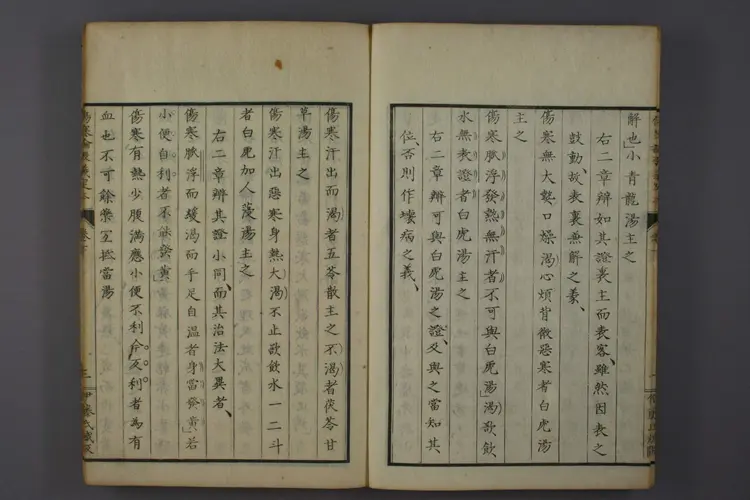 解也」小青龍湯主之
右二章辨如其證表主而表客、雖然因表之
鼓動、故表裏兼解之義、
傷寒無大熱口燥渴心煩背微惡寒者白虎湯
主之
傷寒脈浮發熱無汗者不可與白虎湯」渴欲飲
水無表證者白虎湯主之
右二章辨可與白虎湯之證、又與之當知其
位、否則作壞病之義、
傷寒汗出而渴者五苓散主之不渴者茯苓甘
草湯主之
傷寒汗出惡寒身熱大渴不止欲飲水一二斗
者白虎加人蓡湯主之
右二章辨其證小同、而其治法大異者、
傷寒脈浮而緩渴而手足自溫者身當發黃」若
小便自利者不能發黃」
傷寒有熱少腹滿應小便不利今反利者為有
血也不可餘藥宜抵當湯